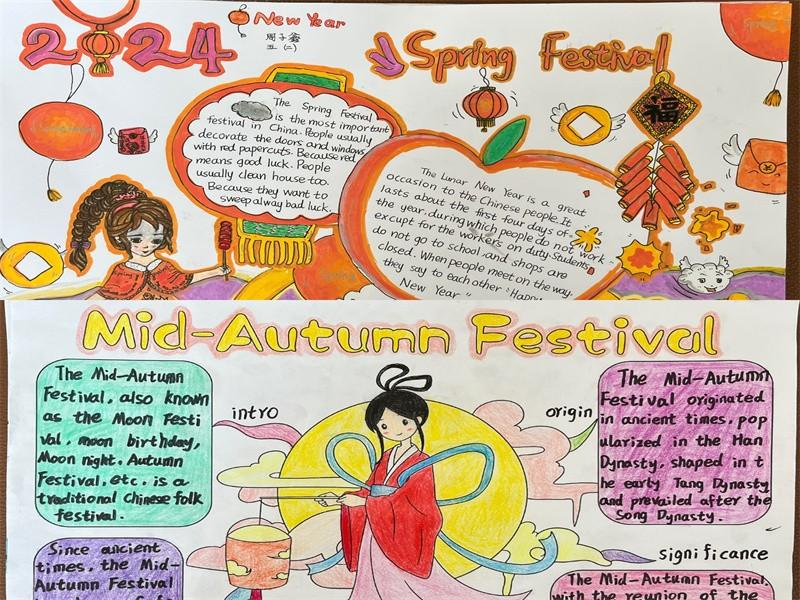 2024
New Year
Spring Festival
五(二)
福
The Spring Festival
is the most important
festival in China. People usually
decorate the doors and windows
with red papercuts. Because red
means good luck. People
usually clean house too.
Because they want to
sweep alway bad luck.
The Lunar New Year is a great
occasion to the Chinese people. It
lasts about the first four days of
the year, during which people do not work
excupt for the workers on duty. Students
do not go to school, and shops are
closed. When people meet on the way.
they say to each other "Happy
New Year"
Mid-Autumn Festival
The Mid-Autumn
Festival, also known
as the Moon Festi
val, moon birthday,
Moon night. Autumn
Festival, etc. is a
traditional Chinese folk
festival.
intro
origin
The Mid-Autumn
Festival originated
in ancient times, pop
ularized in the Han
Dynasty, shaped in t
he early Tang Dynasty
and prevailed after the
Song Dynasty.
Since ancient
times, the Mid-
Autumn Festival
significance
The Mid-Autumn Festival,
with the reunion of the